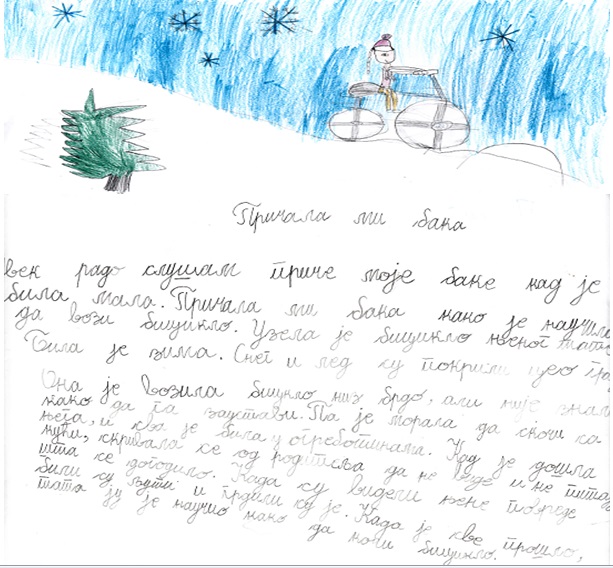 Причала ми бака
век радо слушам приче моје баке кад је
била мала. Причала ми бака како је научила
да вози бицикло. Узела је бицикло његог тате
Била је зима. Снег и лед су покрили цео
Она је возила бицикло низ брдо, али није знала
како да га заустави. Па је морала да скочи са
њега, и сва је била у огреботинама. Кад је дошла
кући, скривала се од родитеља да не виде и не питају
шта се догодило. Када су видели њене повреде
били су љути и грдили су је. Када је све прошло,
тата ју је научио како да кочи бицикло.